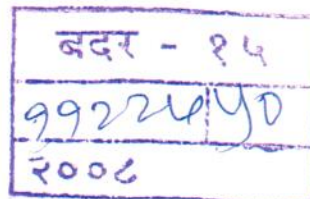 बदर - १५
११२२४/५०
२००८